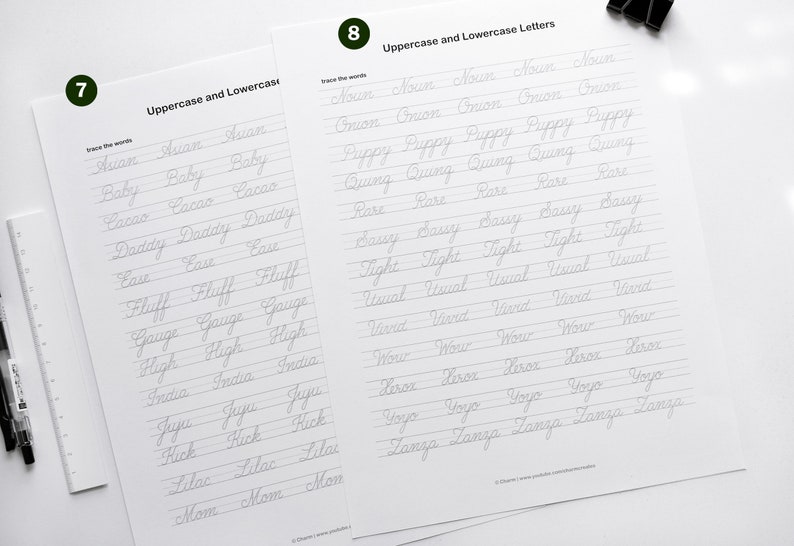 7
Uppercase and Lowercase
trace the words
Asian Asian Asian
Baby Baby Baby
Cacao Cacao Cacao
Daddy Daddy Daddy
Ease Ease Ease
Fluff Fluff Fluff
Gauge Gauge Gauge
High High High
India India India
Juju Juju Juju
Kick Kick Kick
Lilac Lilac Lilac
Mom Mom Mom
© Charm | www.youtube.
8
Uppercase and Lowercase Letters
trace the words
Noun Noun Noun Noun Noun
Onion Onion Onion Onion Onion
Puppy Puppy Puppy Puppy Puppy
Quing Quing Quing Quing Quing
Rare Rare Rare Rare Rare
Sassy Sassy Sassy Sassy Sassy
Tight Tight Tight Tight Tight
Usual Usual Usual Usual Usual
Vivid Vivid Vivid Vivid Vivid
Wow Wow Wow Wow Wow
Xerox Xerox Xerox Xerox Xerox
Yoyo Yoyo Yoyo Yoyo Yoyo
Zanza Zanza Zanza Zanza Zanza
© Charm | www.youtube.com/charmcreates